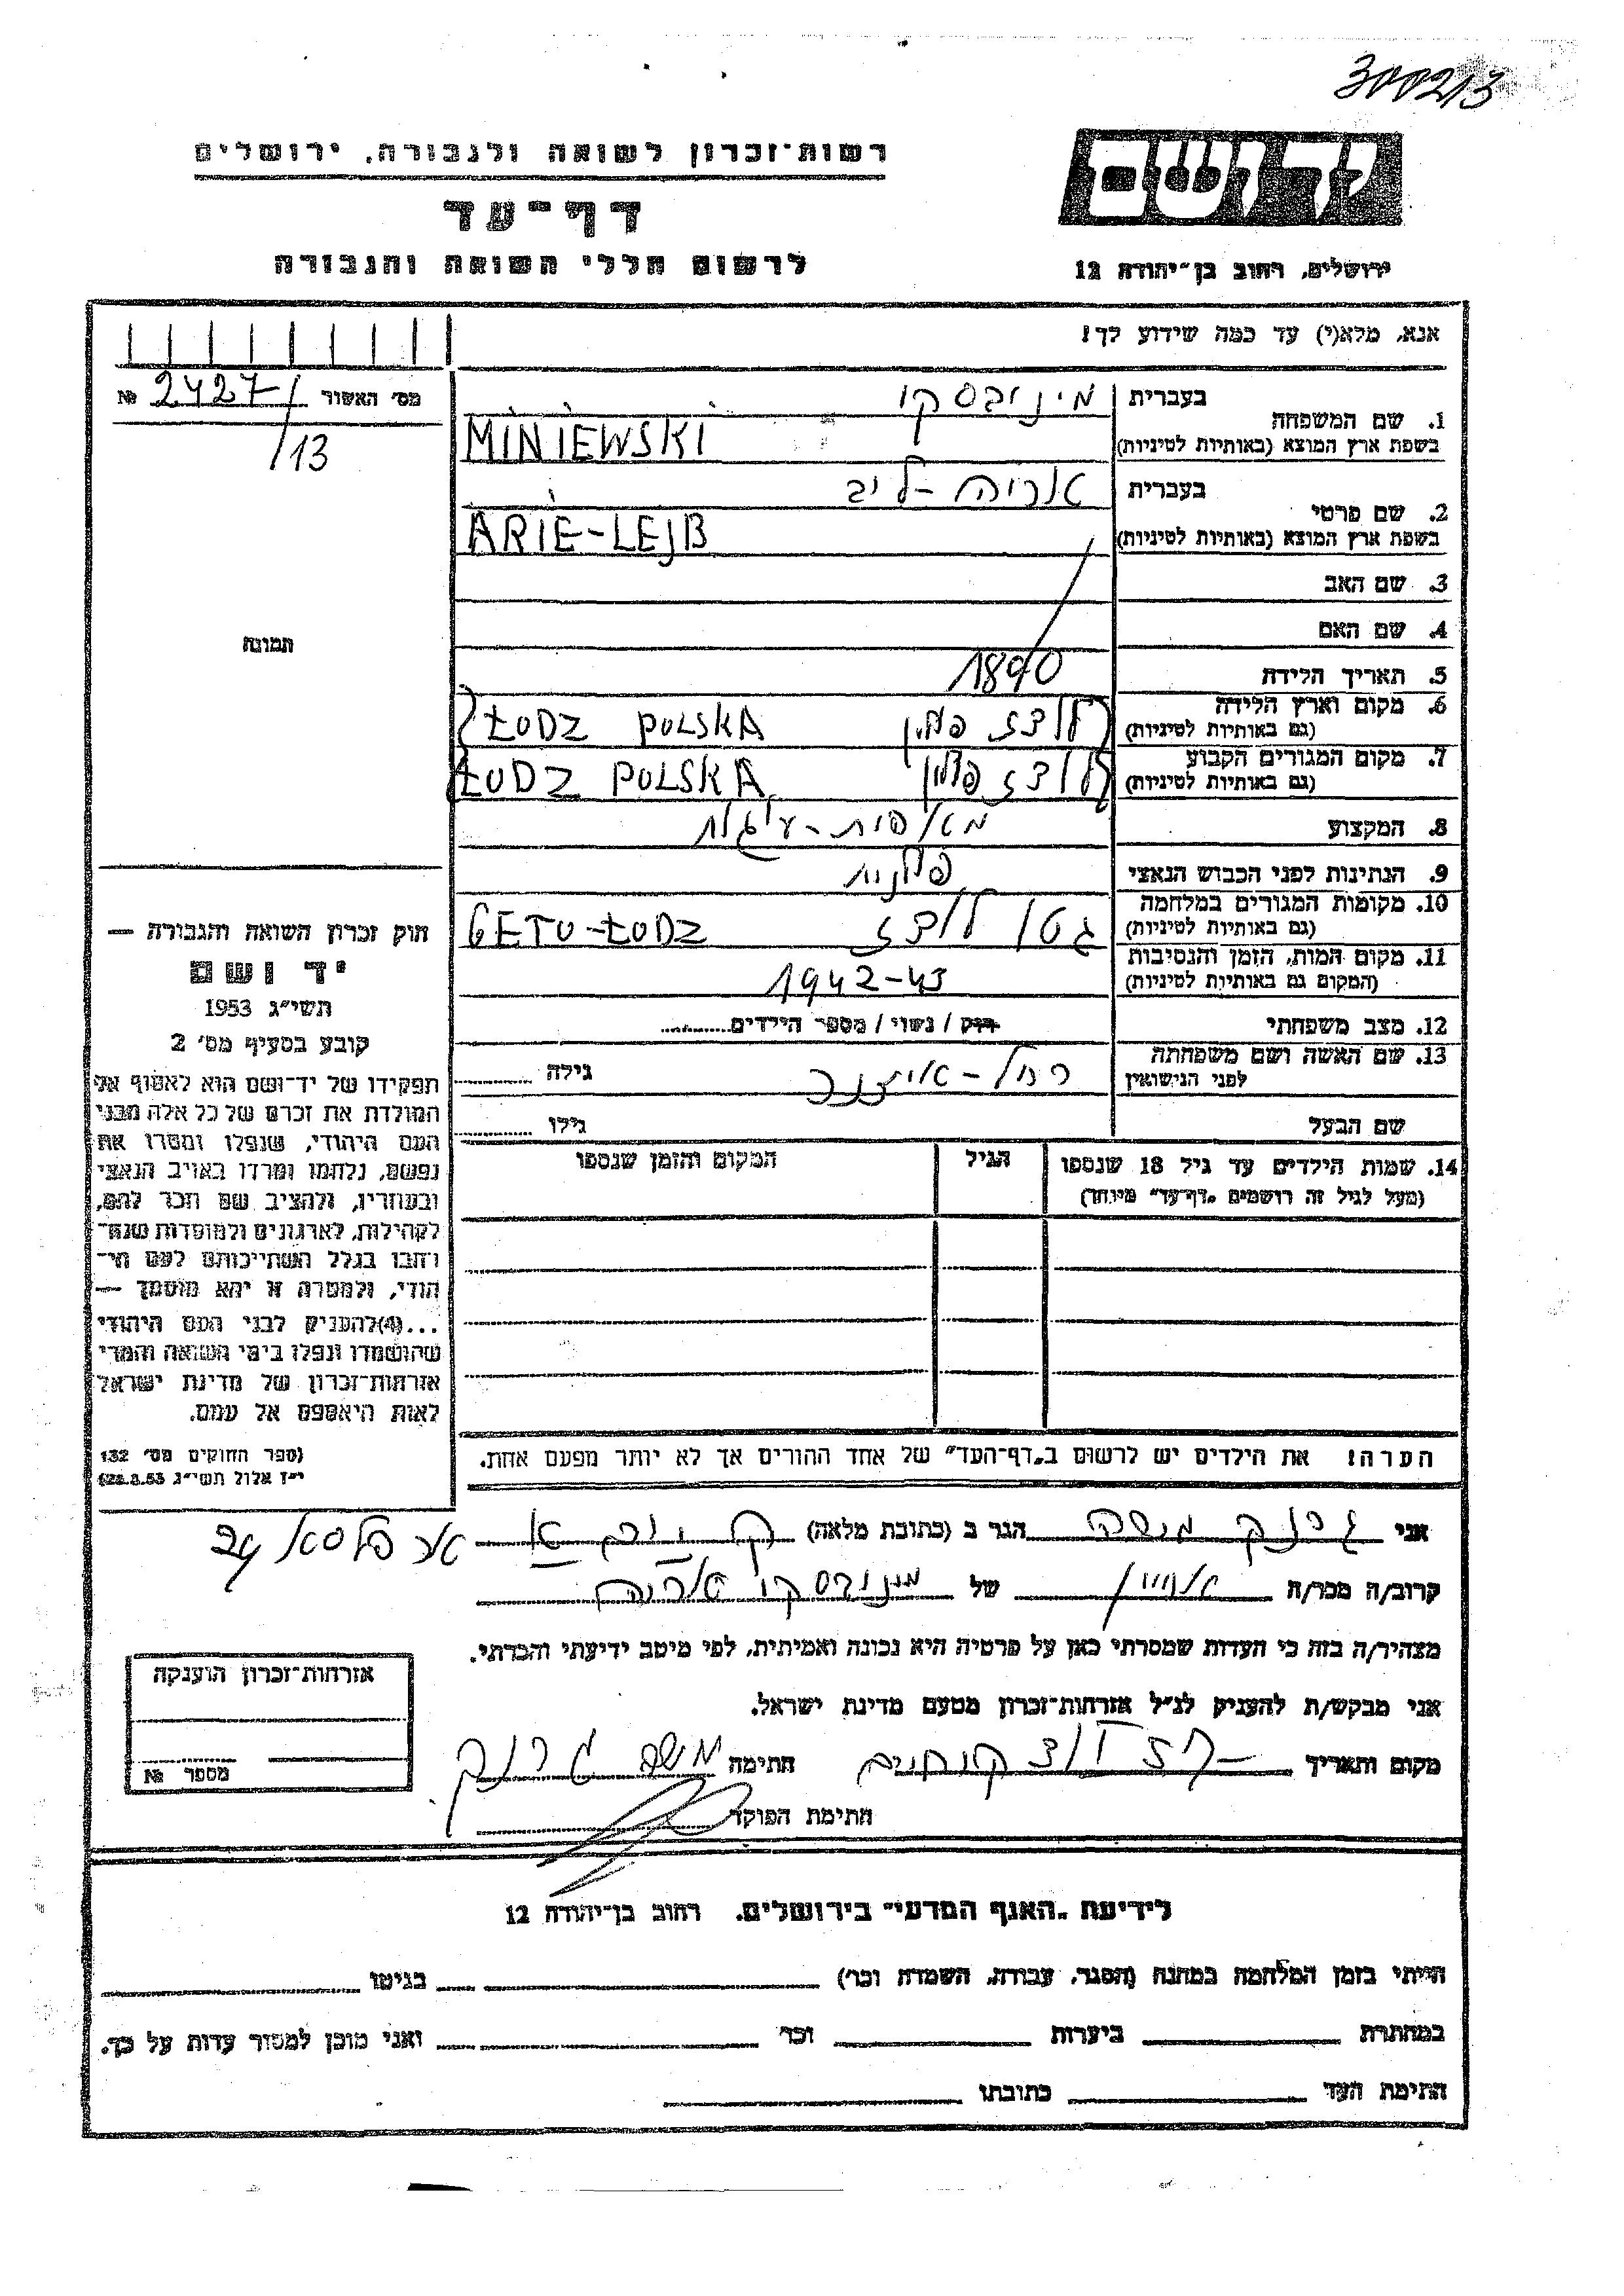 300213
רשות־זכרון לשואה ולגבורה, ירושלים
יד ושם
דף־עד
לרשום חללי השואה והגבורה
ירושלים, רחוב בן־יהודה 12
אנא, מלא(י) עד כמה שידוע לך!
מס׳ האשור 2427/ №
/13
בעברית מינובסקי
1. שם המשפחה
בשפת ארץ המוצא (באותיות לטיניות) MINIEWSKI
בעברית אריה-ליב
2. שם פרטי
בשפת ארץ המוצא (באותיות לטיניות) ARIE-LEJB
3. שם האב
4. שם האם
תמונה
5. תאריך הלידה 1890
6. מקום וארץ הלידה
(גם באותיות לטיניות) לודז פולין ŁODZ POLSKA
7. מקום המגורים הקבוע
(גם באותיות לטיניות) לודז פולין ŁODZ POLSKA
8. המקצוע
9. הנתינות לפני הכבוש הנאצי פולנית
10. מקומות המגורים במלחמה
(גם באותיות לטיניות) גטו לודז GETO-ŁODZ
11. מקום המות, הזמן והנסיבות
(המקום גם באותיות לטיניות) 1942-43
12. מצב משפחתי רוק / נשוי / מספר הילדים
13. שם האשה ושם משפחתה
לפני הנישואין רחל- גילה
שם הבעל גילו
14. שמות הילדים עד גיל 18 שנספו הגיל המקום והזמן שנספו
(מעל לגיל זה רושמים „דף־עד״ מיוחד)
הערה! את הילדים יש לרשום ב„דף־העד״ של אחד ההורים אך לא יותר מפעם אחת.
חוק זכרון השואה והגבורה —
יד ושם
תשי״ג 1953
קובע בסעיף מס׳ 2
תפקידו של יד־ושם הוא לאסוף אל
המולדת את זכרם של כל אלה מבני
העם היהודי, שנפלו ומסרו את
נפשם, נלחמו ומרדו באויב הנאצי
ובעוזריו, ולהציב שם וזכר להם,
לקהילות, לארגונים ולמוסדות שנח־
רבו בגלל השתייכותם לעם הי־
הודי, ולמטרה זו יהא מוסמך —
...(4)להעניק לבני העם היהודי
שהושמדו ונפלו בימי השואה והמרי
אזרחות־זכרון של מדינת ישראל
לאות היאספם אל עמם.
(ספר החוקים מס׳ 132
י״ז אלול תשי״ג 28.8.53)
אני משה הגר ב (כתובת מלאה)
קרוב/ה מכר/ה של מינובסקי אריה
מצהיר/ה בזה כי העדות שמסרתי כאן על פרטיה היא נכונה ואמיתית, לפי מיטב ידיעתי והכרתי.
אני מבקש/ת להעניק לנ״ל אזרחות־זכרון מטעם מדינת ישראל.
מקום ותאריך חתימה משה
חתימת הפוקד
אזרחות־זכרון הוענקה
מספר №
לידיעת „האגף המדעי״ בירושלים. רחוב בן־יהודה 12
הייתי בזמן המלחמה במחנה (הסגר, עבודה, השמדה וכו׳) בגיטו
במחתרת ביערות וכו׳ ואני מוכן למסור עדות על כך.
חתימת העד כתובתו